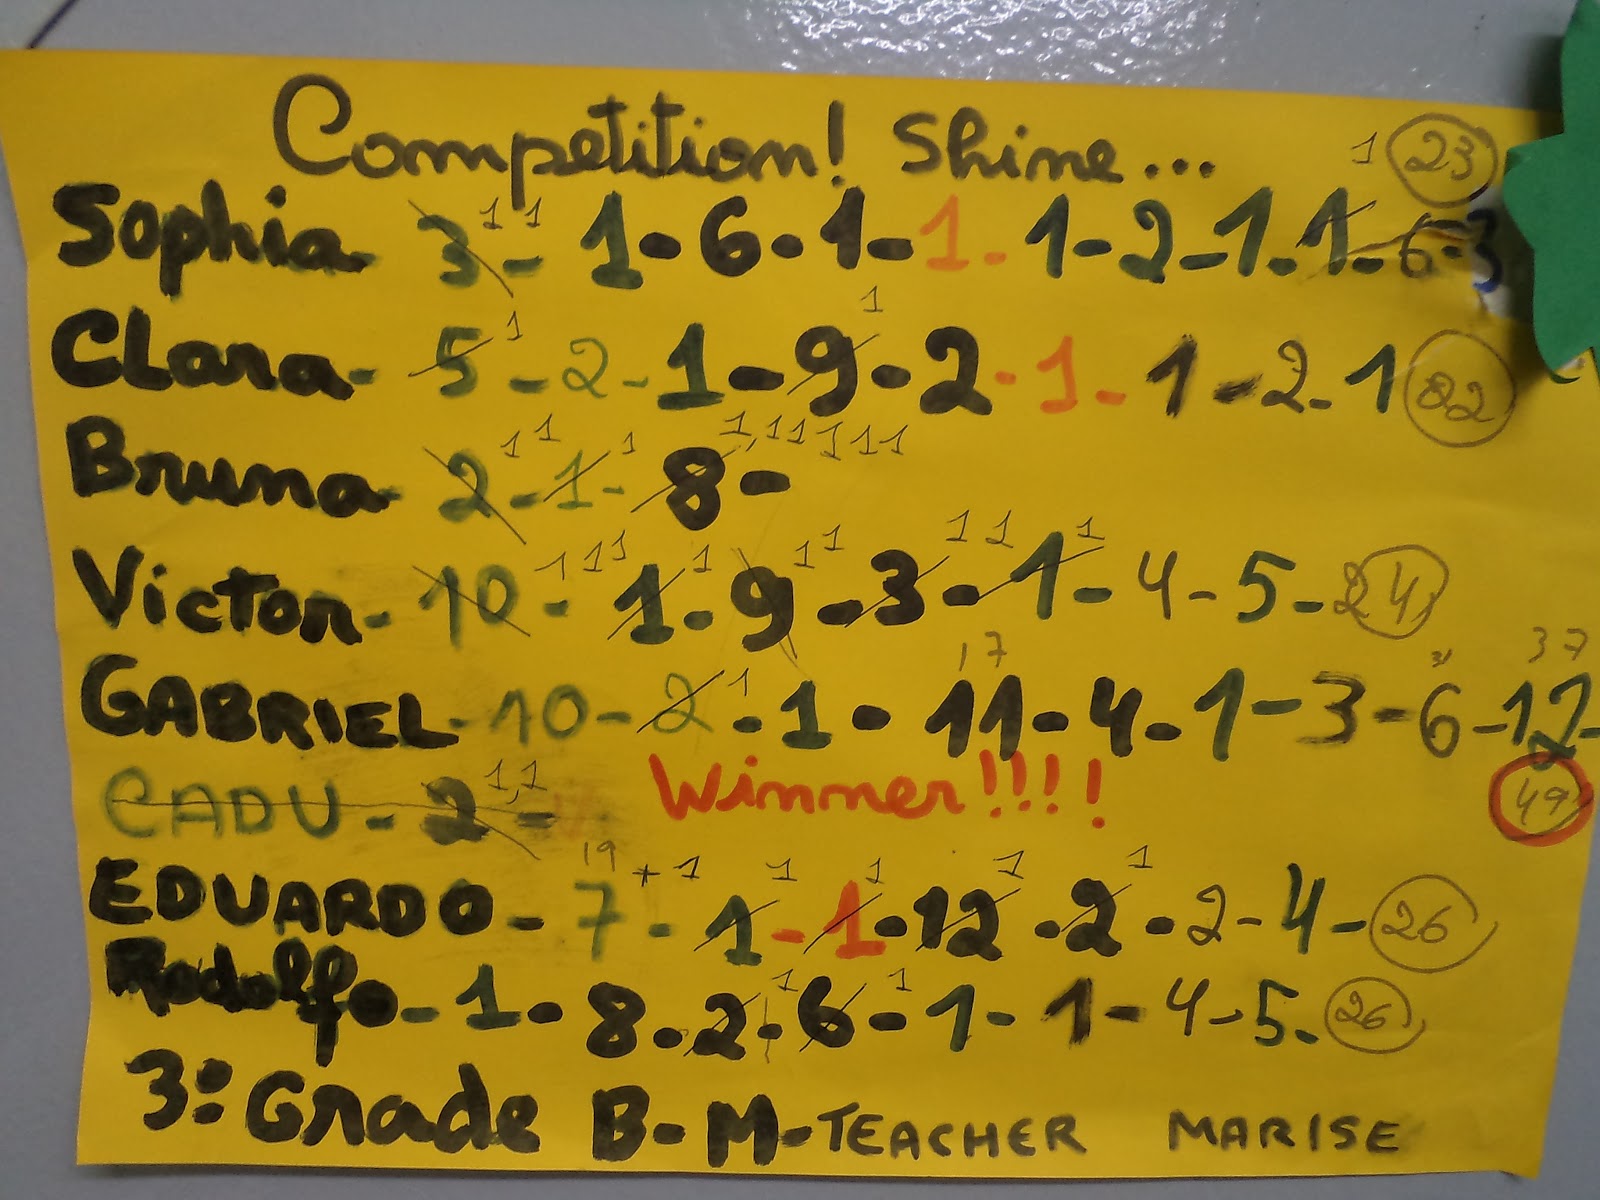 Competition! Shine... 1 23
Sophia - 3 1 1 - 1 - 6 - 1 - 1 - 1 - 2 - 1 - 1 - 6 - 3
Clara - 5 1 - 2 - 1 - 9 1 - 2 - 1 - 1 - 2 - 1 22
Bruna - 2 1 1 - 1 1 - 8 - 1 1 1 1 1 1
Victor - 10 - 1 1 1 1 1 - 9 1 1 - 3 - 1 1 1 1 - 4 - 5 - 24
17 31 37
GABRIEL - 10 - 2 1 - 1 - 11 - 4 - 1 - 3 - 6 - 12 -
CADU - 2 1, 1 - 17 Winner!!!! 49
19
EDUARDO - 7 + 1 - 1 1 - 1 1 - 12 1 - 2 1 - 2 - 4 - 26
Rodolfo - 1 - 8 - 2 1 - 6 1 - 1 - 1 - 4 - 5 - 26
3º Grade B - M - TEACHER MARISE